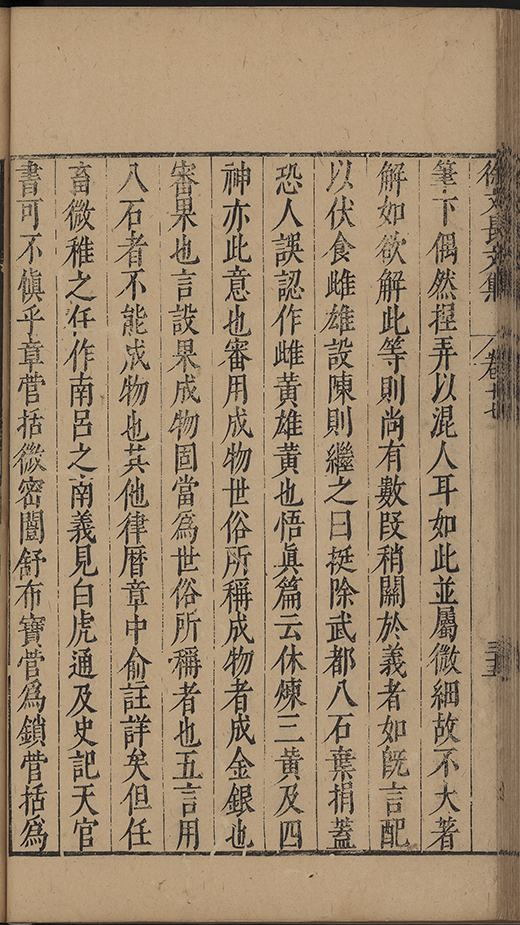 徐文長文集 卷十七 三十五
筆下偶然捏弄以混人耳如此並屬微細故不大著
解如欲解此等則尚有數段稍關於義者如既言配
以伏食雌雄設陳則繼之曰挺除武都八石棄捐蓋
恐人誤認作雌黃雄黃也悟眞篇云休煉三黃及四
神亦此意也審用成物世俗所稱成物者成金銀也
審果也言設果成物固當爲世俗所稱者也五言用
八石者不能成物也其他律曆章中俞註詳矣但任
畜微稚之任作南呂之南義見白虎通及史記天官
書可不慎乎章菅括微密闓舒布寶菅爲鎖菅括爲